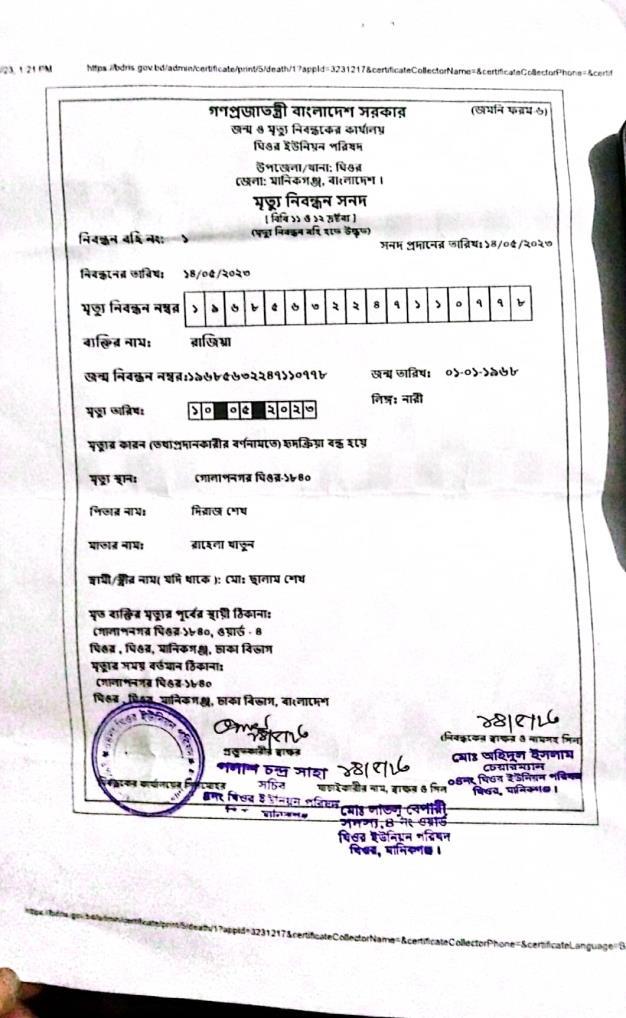 /23, 1:21 PM https://bdris.gov.bd/admin/certificate/print/5/death/1?appId=3231217&certificateCollectorName=&certificateCollectorPhone=&certif
গণপ্রজাতন্ত্রী বাংলাদেশ সরকার (জমনি ফরম-৬)
জন্ম ও মৃত্যু নিবন্ধকের কার্যালয়
ঘিওর ইউনিয়ন পরিষদ
উপজেলা/থানা: ঘিওর
জেলা: মানিকগঞ্জ, বাংলাদেশ।
মৃত্যু নিবন্ধন সনদ
[ বিধি ১১ ও ১২ দ্রষ্টব্য ]
(মৃত্যু নিবন্ধন বহি হতে উদ্ধৃত)
নিবন্ধন বহি নং: ১
সনদ প্রদানের তারিখ:১৪/০৫/২০২৩
নিবন্ধনের তারিখ: ১৪/০৫/২০২৩
মৃত্যু নিবন্ধন নম্বর ১ ৯ ৬ ৮ ৫ ৬ ৩ ২ ২ ৪ ৭ ১ ১ ০ ৭ ৭ ৮
ব্যক্তির নাম: রাজিয়া
জন্ম নিবন্ধন নম্বর:১৯৬৮৫৬৩২২৪৭১১০৭৭৮ জন্ম তারিখ: ০১-০১-১৯৬৮
মৃত্যু তারিখ: ১০ ০৫ ২০২৩ লিঙ্গ: নারী
মৃত্যুর কারন (তথ্যপ্রদানকারীর বর্ণনামতে) হৃদক্রিয়া বন্ধ হয়ে
মৃত্যু স্থান: গোলাপনগর ঘিওর-১৮৪০
পিতার নাম: মিরাজ শেখ
মাতার নাম: রাহেলা খাতুন
স্বামী/স্ত্রীর নাম( যদি থাকে ): মো: ছালাম শেখ
মৃত ব্যক্তির মৃত্যুর পূর্বের স্থায়ী ঠিকানা:
গোলাপনগর ঘিওর-১৮৪০, ওয়ার্ড - ৪
ঘিওর , ঘিওর, মানিকগঞ্জ, ঢাকা বিভাগ
মৃত্যুর সময় বর্তমান ঠিকানা:
গোলাপনগর ঘিওর-১৮৪০
ঘিওর , ঘিওর, মানিকগঞ্জ, ঢাকা বিভাগ, বাংলাদেশ
(নিবন্ধকের স্বাক্ষর ও নামসহ সিল)
মোঃ অহিদুল ইসলাম
চেয়ারম্যান
৪নং ঘিওর ইউনিয়ন পরিষদ
ঘিওর, মানিকগঞ্জ।
প্রস্তুতকারীর স্বাক্ষর
পলাশ চন্দ্র সাহা
সচিব
৪নং ঘিওর ইউনিয়ন পরিষদ
মানিকগঞ্জ
নিবন্ধকের কার্যালয়ের সিলমোহর যাচাইকারীর নাম, স্বাক্ষর ও সিল
মোঃ লাভলু বেপারী
সদস্য, ৪ নং ওয়ার্ড
ঘিওর ইউনিয়ন পরিষদ
ঘিওর, মানিকগঞ্জ।
https://bdris.gov.bd/admin/certificate/print/5/death/1?appId=3231217&certificateCollectorName=&certificateCollectorPhone=&certificateLanguage=B